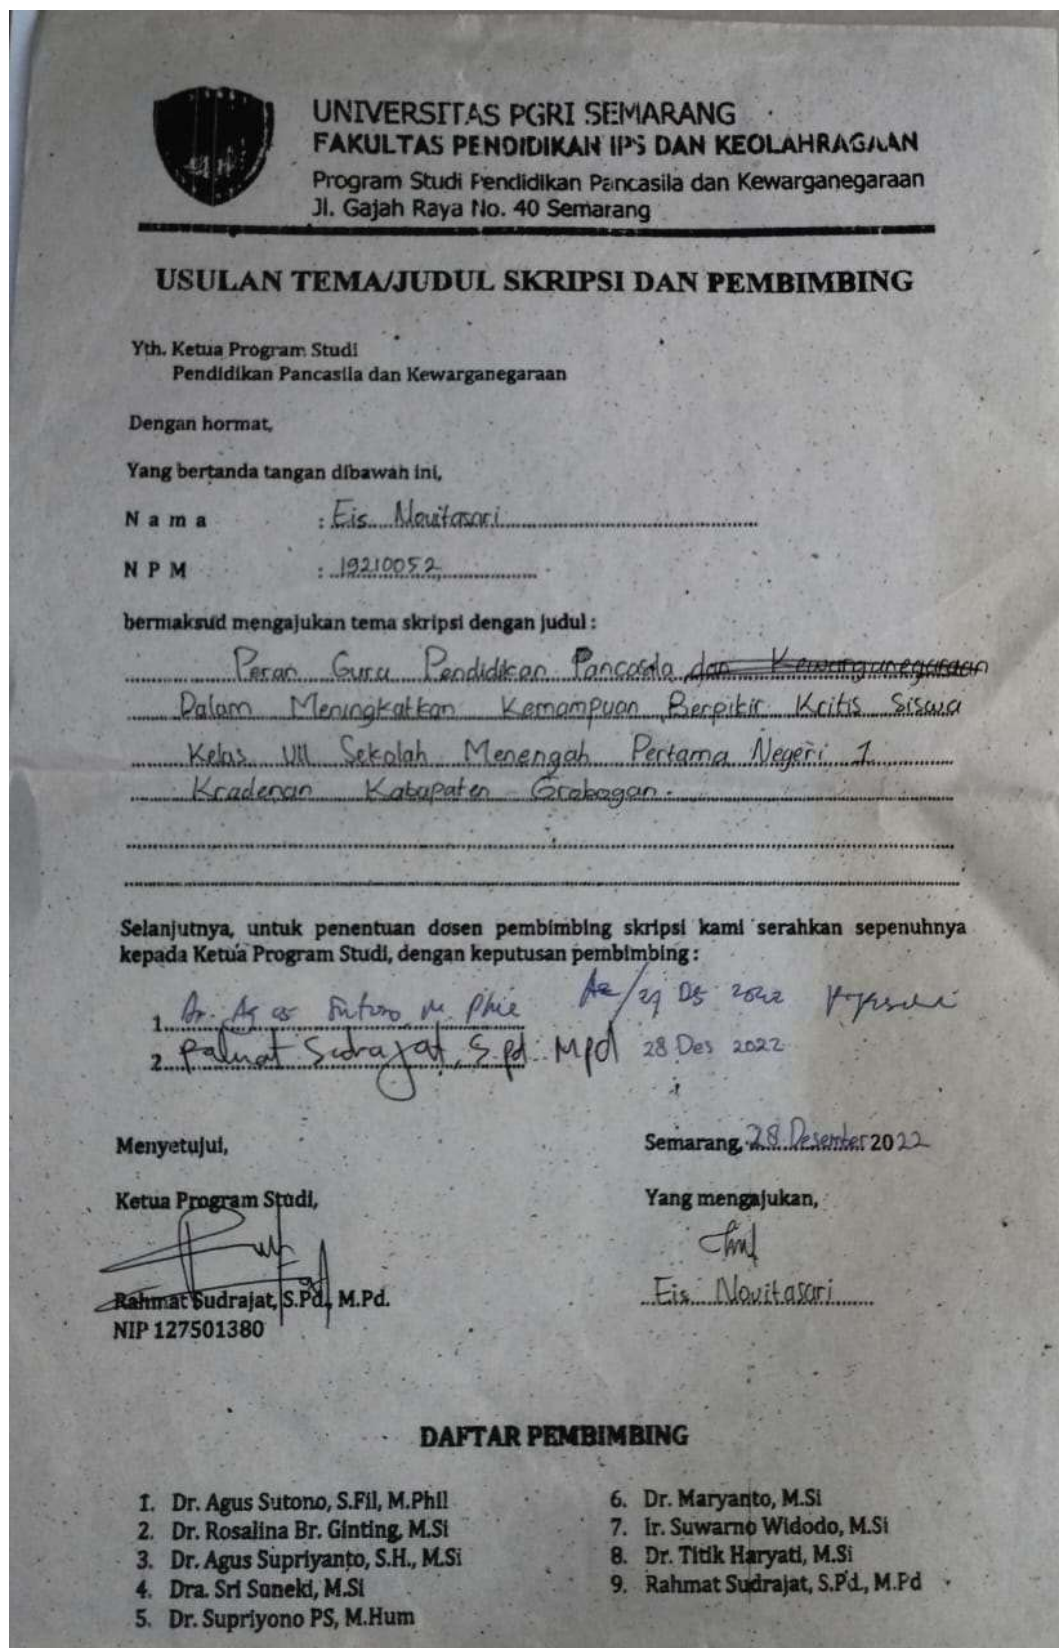 UNIVERSITAS PGRI SEMARANG
FAKULTAS PENDIDIKAN IPS DAN KEOLAHRAGAAN
Program Studi Pendidikan Pancasila dan Kewarganegaraan
Jl. Gajah Raya No. 40 Semarang
USULAN TEMA/JUDUL SKRIPSI DAN PEMBIMBING
Yth. Ketua Program Studi
Pendidikan Pancasila dan Kewarganegaraan
Dengan hormat,
Yang bertanda tangan dibawah ini,
N a m a : Eis Novitasari
N P M : 19210052
bermaksud mengajukan tema skripsi dengan judul :
Peran Guru Pendidikan Pancasila dan Kewarganegaraan
Dalam Meningkatkan Kemampuan Berpikir Kritis Siswa
Kelas VIII Sekolah Menengah Pertama Negeri 1
Kradenan Kabupaten Grobogan.
Selanjutnya, untuk penentuan dosen pembimbing skripsi kami serahkan sepenuhnya
kepada Ketua Program Studi, dengan keputusan pembimbing :
1. Dr. Agus Sutono, M. Phil 29 Des 2022
2. Rahmat Sudrajat, S.Pd. MPd 28 Des 2022
Menyetujui,
Semarang, 28 Desember 2022
Ketua Program Studi,
Yang mengajukan,
Rahmat Sudrajat, S.Pd., M.Pd.
Eis Novitasari
NIP 127501380
DAFTAR PEMBIMBING
1. Dr. Agus Sutono, S.Fil, M.Phil
2. Dr. Rosalina Br. Ginting, M.Si
3. Dr. Agus Supriyanto, S.H., M.Si
4. Dra. Sri Suneki, M.Si
5. Dr. Supriyono PS, M.Hum
6. Dr. Maryanto, M.Si
7. Ir. Suwarno Widodo, M.Si
8. Dr. Titik Haryati, M.Si
9. Rahmat Sudrajat, S.Pd., M.Pd